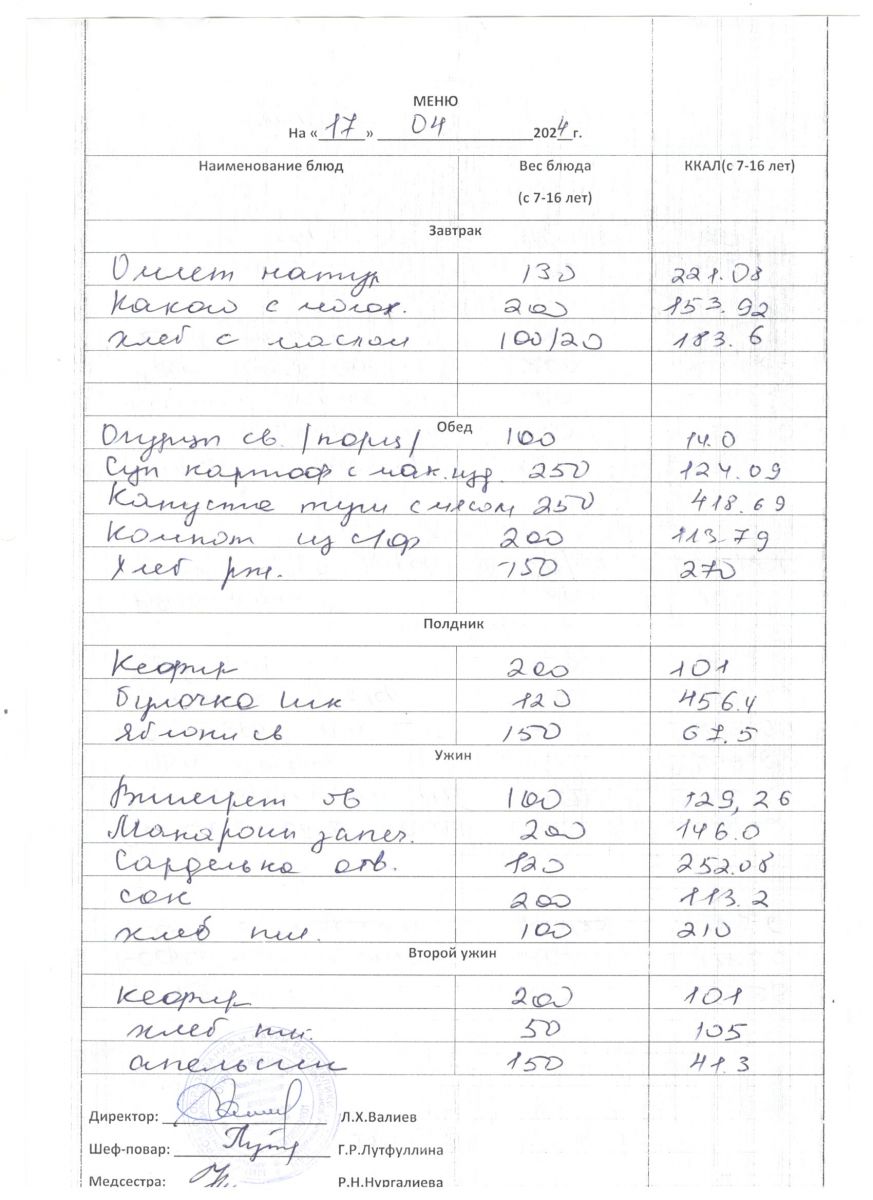 МЕНЮ
На «17» 04 2024 г.
Наименование блюд Вес блюда (с 7-16 лет) ККАЛ(с 7-16 лет)
Завтрак
Омлет натур 130 221.08
Какао с молок. 200 153.92
хлеб с маслом 100/20 183.6
Обед
Огурцы св. /порц/ 100 14.0
Суп картоф с мак.изд. 250 124.09
Капуста туш с мясом 250 418.69
Компот из с/ф 200 113.79
Хлеб рж. 150 270
Полдник
Кефир 200 101
Булочка шк 120 456.4
Яблоки св 150 67.5
Ужин
Винегрет ов 100 129,26
Макароны запеч. 200 146.0
Сарделька отв. 120 252.08
сок 200 113.2
хлеб пш. 100 210
Второй ужин
кефир 200 101
хлеб пш. 50 105
апельсин 150 41.3
Директор: Л.Х.Валиев
Шеф-повар: Г.Р.Лутфуллина
Медсестра: Р.Н.Нургалиева